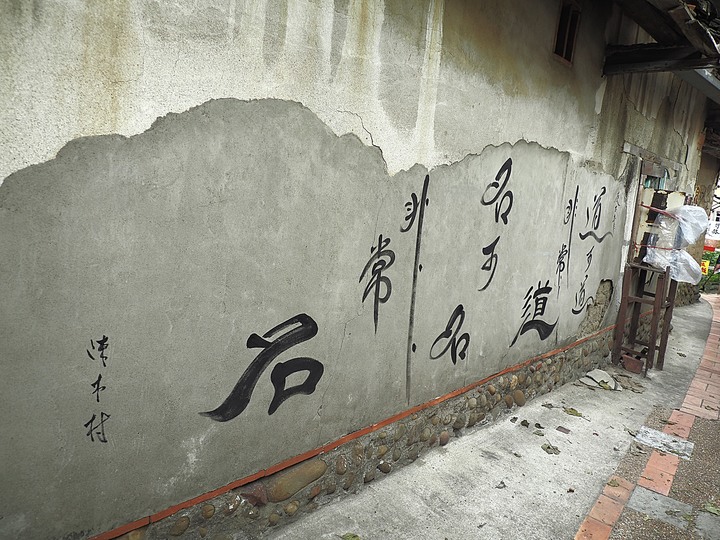 道可道
非常道
名可名
非常名
木村